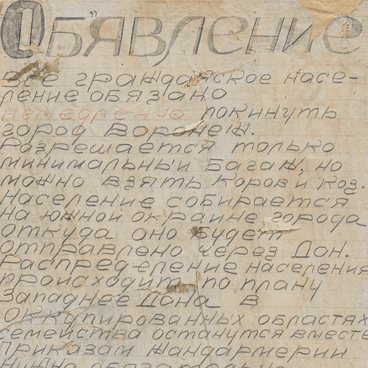 Обявление
Все гражданское насе-
ление обязано
немедленно покинуть
город Воронеж.
Разрешается только
минимальный багаж, но
можно взять коров и коз.
Население собирается
на южной окраине города
откуда оно будет
отправлено через Дон.
Распределение населения
происходит по плану
Западнее Дона в
оккупированных областях
семейства останутся вместе
приказам жандармерии